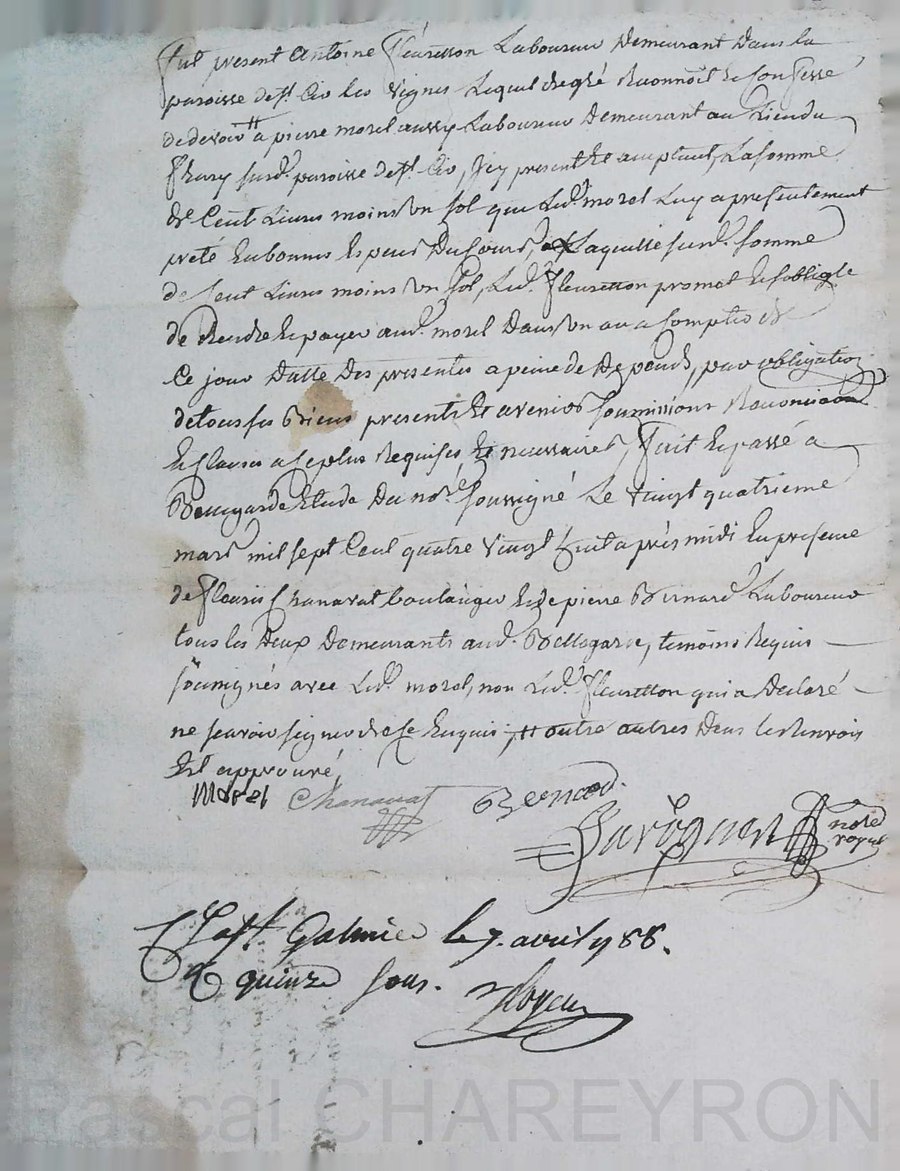 fut present Antoine fleuretton Laboureur Demeurant Dans la
paroisse de st. Cir les Vignes Lequel de gré Reconnoit et Confesse
de devoir # a pierre morel aussy Laboureur Demeurant au Lieu du
thury surd. paroisse de st. Cir, Icy present et acceptant, La somme
de Cent Livres moins un sol que Led. morel Luy a presentement
preté En bonnes Especes Du Cours, Laquelle susd. somme
de Cent Livres moins un sol, Led. fleuretton promet et soblige
de Rendre Et payer aud. morel Dans un an a Compter de
Ce jour Datte Des presentes a peine de Depends, par obligation
de tous ses Biens presents Et avenirs soumissions Renonciaõns
Et Clauses a Ce plus Requises Et necessaires, fait Et passé a
Bellegarde Etude Du nore. soussigné Le vingt quatrieme
mars mil sept Cent quatre vingt huit après midi En presence
de fleuris Chanavat boulanger Et de pierre Bernard Laboureur
tous les Deux Demeurants aud. Bellegarde, temoins Requis
soussignés avec Led. morel, non Led. fleuretton qui a Declaré
ne scavoir signer de ce Enquis, # outre autres Deus Le Renvois
Est approuvé
Morel Chanavat Bernard.
notre
royal
Cllé a st. Galmier le 7. avril 1788.
R quinze sous.